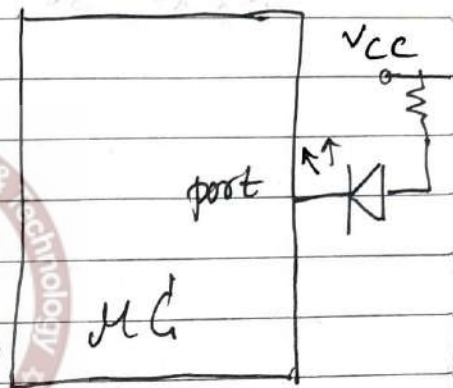 VCC
port
& Technology
μC